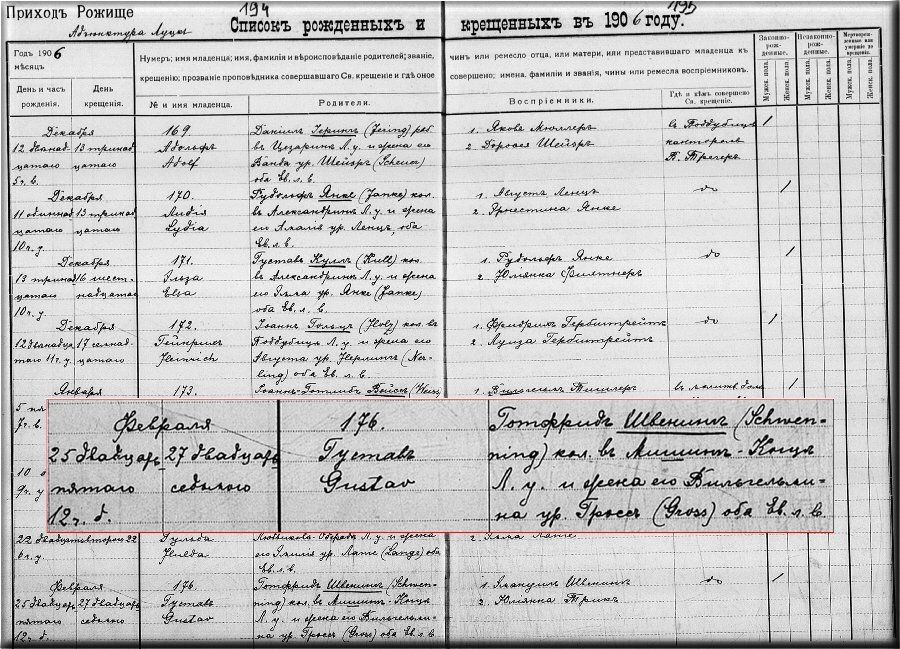 Приходъ Рожище
194
195
Адъюнктура Луцкъ
Списокъ рожденныхъ и
крещенныхъ въ 1906 году.
Годъ 1906
мѣсяцъ
День и часъ рожденія.
День крещенія.
Нумеръ; имя младенца; имя, фамилія и вѣроисповѣданіе родителей; званіе,
крещенію; прозваніе проповѣдника совершавшаго Св. крещеніе и гдѣ оное
№ и имя младенца.
Родители.
чинъ или ремесло отца, или матери, или представившаго младенца къ
совершено; имена, фамиліи и званія, чины или ремесла воспріемниковъ.
Воспріемники.
Гдѣ и кѣмъ совершено Св. крещеніе.
Законно-рож-денные.
Незаконно-рож-денные.
Мертворож-денные или умершіе до крещенія.
Мужск. пола.
Женск. пола.
Мужск. пола.
Женск. пола.
Мужск. пола.
Женск. пола.
Декабря
12 двѣнад
цатаго
5 ч. в.
13 тринад
цатаго
169
Адольфъ
Adolf
Даніилъ Іерингъ (Jering) раб.
въ Цезаринъ Л. у. и жена его
Ванда ур. Шейеръ (Scheuer)
оба Ев. л. в.
1. Яковъ Мюллеръ
2. Доровея Шейеръ
въ Поддубицъ
канторомъ
1
Декабря
11 одиннад
цатаго
10 ч. д.
13 тринад
цатаго
170.
Лидія
Lydia
Рудольфъ Янке (Janke) кол.
въ Александринъ Л. у. и жена
его Амалія ур. Ленцъ, оба
Ев. л. в.
1. Августъ Ленцъ
2. Эрнестина Янке
до
1
Декабря
13 тринад
цатаго
10 ч. у.
16 шест
надцатаго
171.
Эльза
Elsa
Густавъ Куллъ (Kull) кол.
въ Александринъ Л. у. и жена
его Эмма ур. Янке (Janke)
оба Ев. л. в.
1. Рудольфъ Янке
2. Юліянна
до
1
Декабря
12 двѣнадца
таго 11 ч. у.
17 семнад
цатаго
172.
Гейнрихъ
Heinrich
Іоаннъ Гольцъ (Holz) кол. въ
Поддубицъ Л. у. и жена его
Августа ур. Нерлингъ (Ner-
ling) оба Ев. л. в.
1. Фридрихъ Гербштрейтъ
2. Луиза Гербштрейтъ
до
1
Января
173.
Іоаннъ-Готлибъ Вейсъ (Weiss)
1. Вильгельмъ
7 ч. в.
9 ч. у
Февраля
25 двадцать
пятаго
12 ч. д.
27 двадцать
седьмого
176.
Густавъ
Gustav
Готфридъ Швенингъ (Schwen-
ning) кол. въ Мишинъ-Конца
Л. у. и жена его Вильгельми-
на ур. Гроссъ (Gross) оба Ев. л. в
22 двадцать второго 22
6 ч. у.
Гульда
Hulda
Л. у. и жена
его Эмилія ур. Ланге (Lange) оба
Ев. л. в.
Февраля
25 двадцать
пятаго
12 ч. д.
27 двадцать
седьмого
176.
Густавъ
Gustav
Готфридъ Швенингъ (Schwen-
ning) кол. въ Мишинъ-Конца
Л. у. и жена его Вильгельми-
на ур. Гроссъ (Gross) оба Ев. л. в
1. Швенингъ
2. Юліянна
до
1